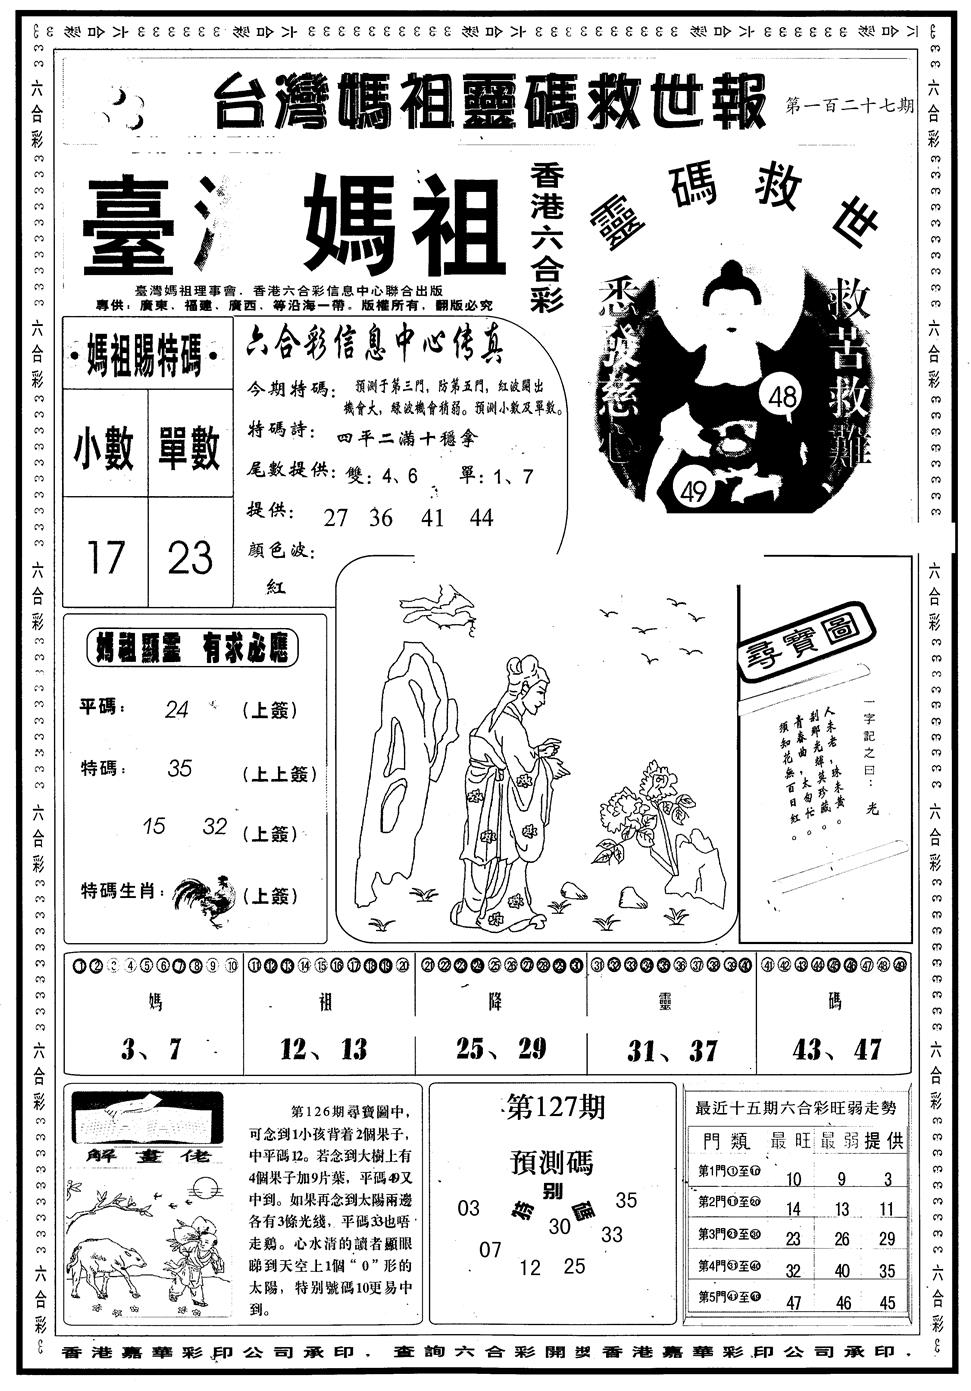 台灣媽祖靈碼救世報
第一百二十七期
臺灣媽祖
香港六合彩
靈碼救世
悉發慈心
救苦救難
48
49
臺灣媽祖理事會．香港六合彩信息中心聯合出版
專供：廣東．福建．廣西．等沿海一帶。版權所有，翻版必究
·媽祖賜特碼·
小數 單數
17 23
六合彩信息中心传真
今期特碼：預測于第三門，防第五門，紅波開出
機會大，綠波機會稍弱。預測小數及單數。
特碼詩：四平二滿十穩拿
尾數提供：雙：4、6 單：1、7
提供：27 36 41 44
顏色波：
紅
媽祖顯靈 有求必應
平碼：24（上簽）
特碼：35（上上簽）
15 32（上簽）
特碼生肖：（上簽）
尋寶圖
一字記之曰：光
人未老，珠未黃，
剎那光緯莫珍藏。
青春曲，太匆忙，
須知花無百日紅。
①②③④⑤⑥⑦⑧⑨⑩
⑪⑫⑬⑭⑮⑯⑰⑱⑲⑳
㉑㉒㉓㉔㉕㉖㉗㉘㉙㉚
㉛㉜㉝㉞㉟㊱㊲㊳㊴㊵
㊶㊷㊸㊹㊺㊻㊼㊽㊾
媽 祖 降 靈 碼
3、7 12、13 25、29 31、37 43、47
解畫佬
第126期尋寶圖中，
可念到1小孩背着2個果子，
中平碼12。若念到大樹上有
4個果子加9片葉，平碼49又
中到。如果再念到太陽兩邊
各有3條光綫，平碼33也唔
走鷄。心水清的讀者顯眼
睇到天空上1個“0”形的
太陽，特别號碼10更易中
到。
第127期
預測碼
特别碼
03
35
30
33
07
12 25
最近十五期六合彩旺弱走勢
門類 最旺 最弱 提供
第1門①至⑩ 10 9 3
第2門⑪至⑳ 14 13 11
第3門㉑至㉚ 23 26 29
第4門㉛至㊵ 32 40 35
第5門㊶至㊾ 47 46 45
香港嘉華彩印公司承印．查詢六合彩開獎香港嘉華彩印公司承印．